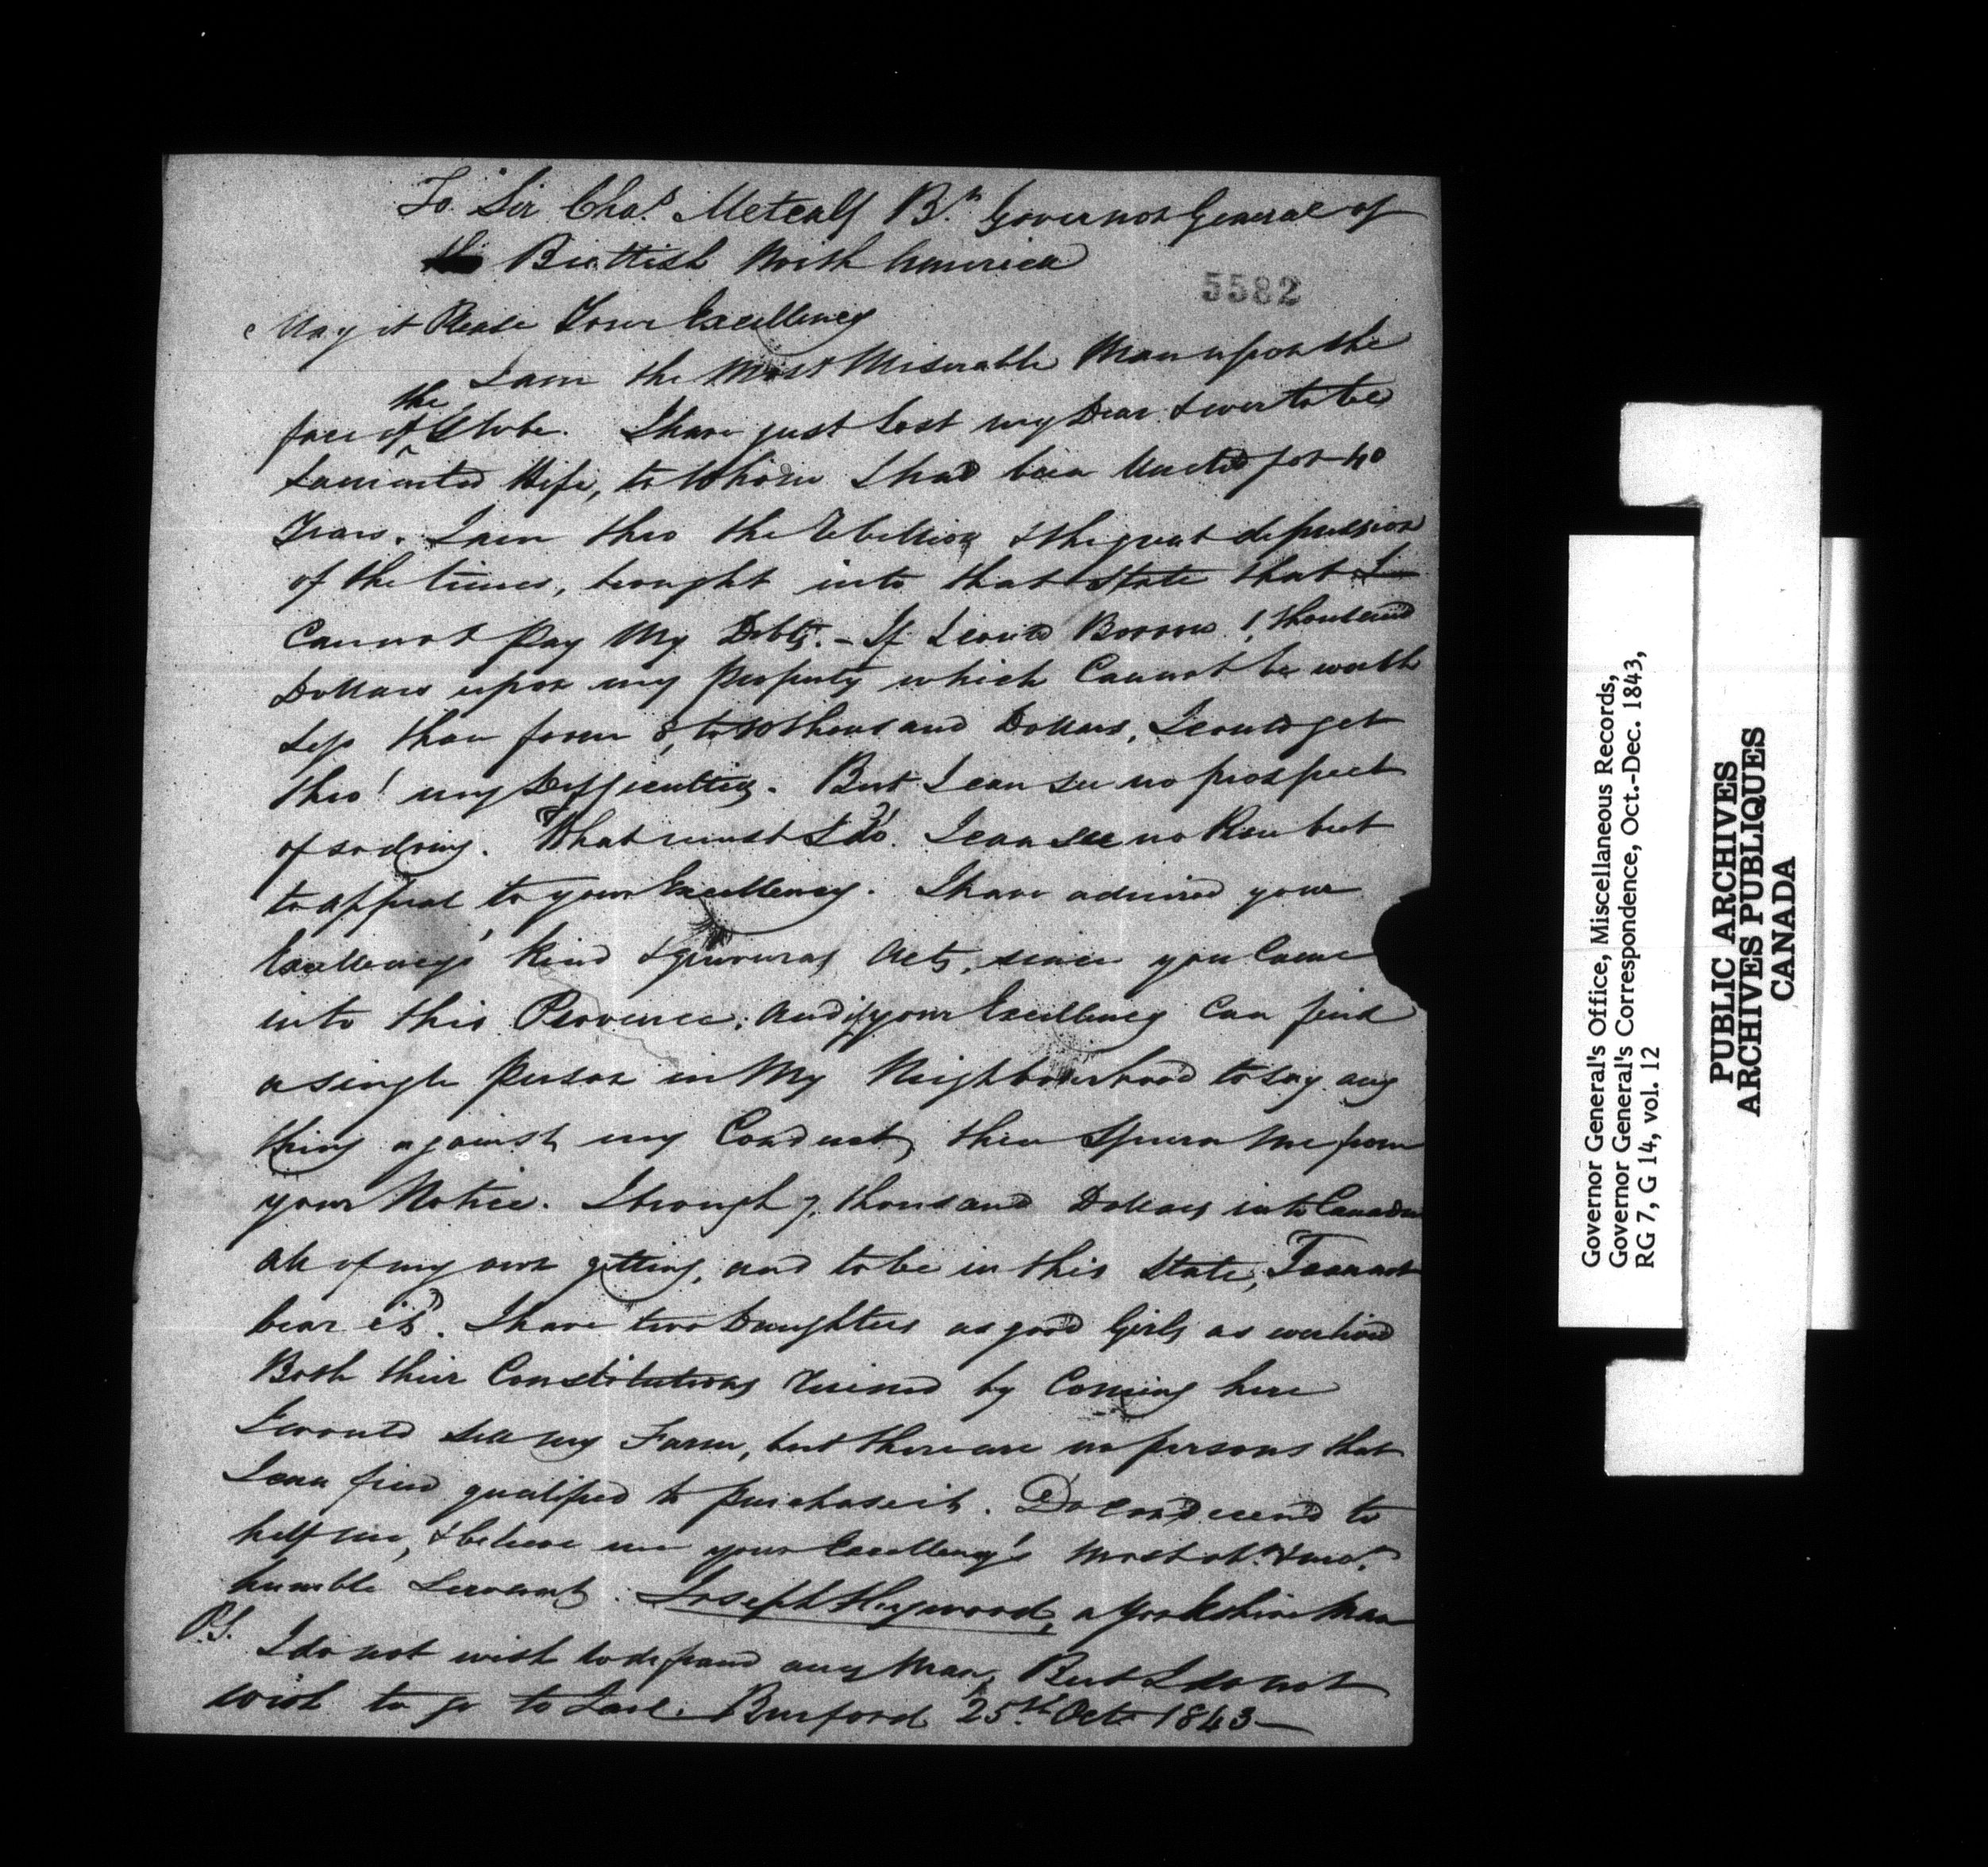 To Sir Chas. Metcalf Bt. Governor General of
the Brittish North America
5582
May it Please Your Excellency
I am the Most Miserable Man upon the
face of the Globe. I have just lost my Dear & ever to be
Lamented Wife, to Whom I had been United for 40
Years. I am thro the Rebellion & the great depression
of the times, brought into that state that I
Cannot Pay My Debts. - If I could Borrow 1, thousand
Dollars upon my property which Cannot be worth
Less than from 8, to 10 thousand Dollars, I could get
thro' my Difficulties. But I can see no prospect
of so doing. What must I do? I can see no Plan but
to appeal to your Excellency. I have admired your
Excellency's kind & generous Acts, since you Came
into this Province, and if your Excellency Can find
a single person in My Neighbourhood to say any
thing against my Conduct, then Spurn me from
your Notice. I brought 7, thousand Dollars into Canada
all of my own getting, and to be in this State, I cannot
bear it. I have two Daughters as good Girls as ever lived
Both their Constitutions Ruined by Coming here
I would sell my Farm, but there are no persons that
I can find qualified to purchase it. Do condecend to
help me, & believe me your Excellency's most obt. & most
humble Servant. Joseph Heywood, a Yorkshire Man
P.S. I do not wish to defraud any Man, But I do not
wish to go to Jail. Burford 25th Octr 1843
Governor General's Office, Miscellaneous Records,
Governor General's Correspondence, Oct.-Dec. 1843,
RG 7, G 14, vol. 12
PUBLIC ARCHIVES
ARCHIVES PUBLIQUES
CANADA